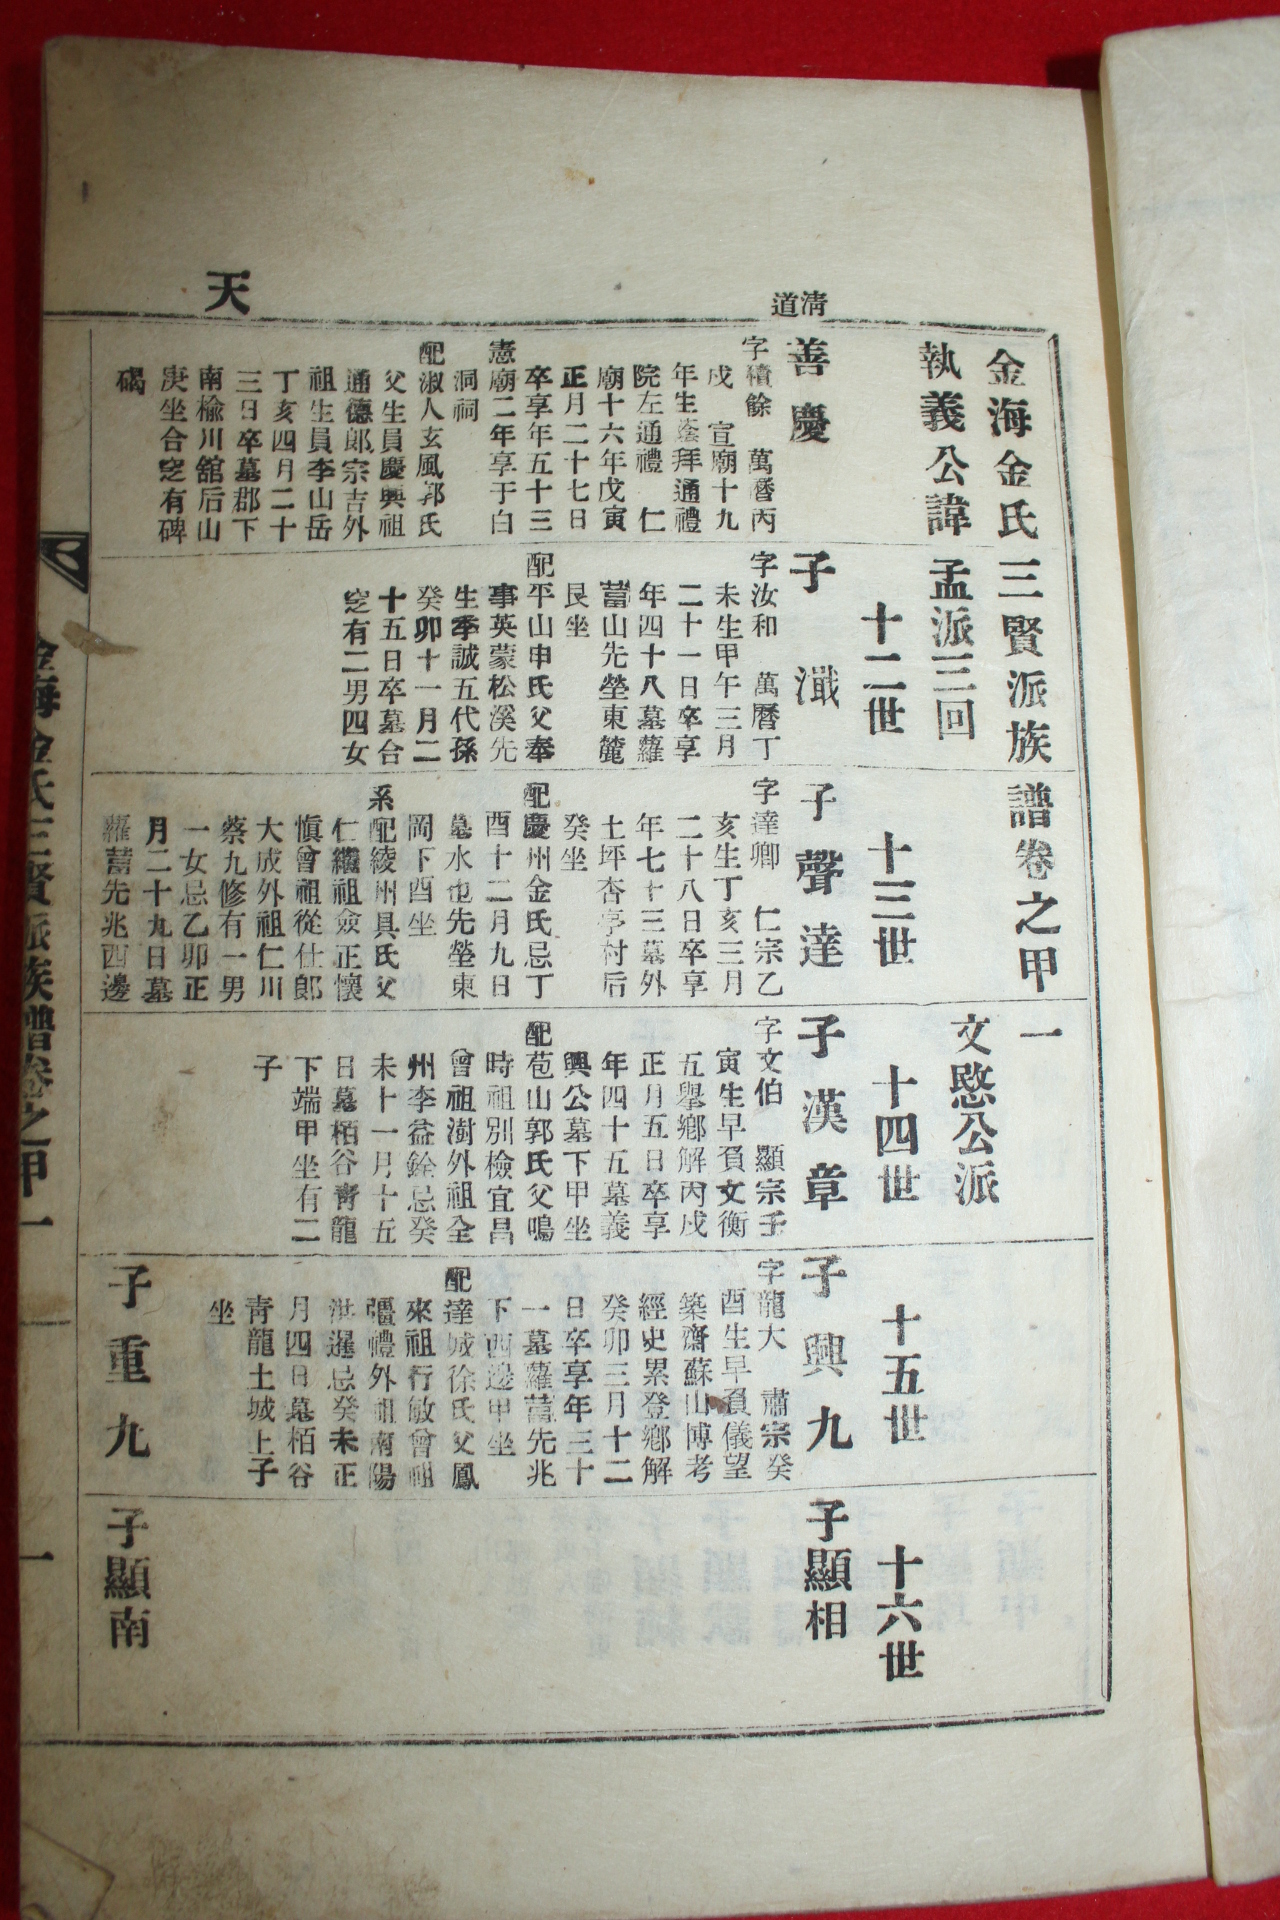 天
清道
金海金氏三賢派族譜卷之甲一
執義公諱孟派三回
文愍公派
十二世
十三世
十四世
十五世
十六世
善慶
字積餘 萬曆丙
戌 宣廟十九
年生蔭拜通禮
院左通禮 仁
廟十六年戊寅
正月二十七日
卒享年五十三
憲廟二年享于白
洞祠
配淑人玄風郭氏
父生員慶興祖
通德郞宗吉外
祖生員李山岳
丁亥四月二十
三日卒墓郡下
南楡川舘后山
庚坐合窆有碑
碣
子瀸
字汝和 萬曆丁
未生甲午三月
二十一日卒享
年四十八墓蘿
蔔山先塋東麓
艮坐
配平山申氏父奉
事英蒙松溪先
生季誠五代孫
癸卯十一月二
十五日卒墓合
窆有二男四女
子聲達
字達卿 仁宗乙
亥生丁亥三月
二十八日卒享
年七十三墓外
土坪杏亭村后
癸坐
配慶州金氏忌丁
酉十二月九日
墓水也先塋東
岡下酉坐
系配綾州具氏父
仁繼祖僉正懷
愼曾祖從仕郞
大成外祖仁川
蔡九修有一男
一女忌乙卯正
月二十九日墓
蘿蔔先兆西邊
子漢章
字文伯 顯宗壬
寅生早負文衡
五擧鄕解丙戌
正月五日卒享
年四十五墓義
興公墓下甲坐
配苞山郭氏父鳴
時祖別檢宜昌
曾祖澍外祖全
州李益銓忌癸
未十一月十五
日墓栢谷靑龍
下端甲坐有二
子
子興九
字龍大 肅宗癸
酉生早負儀望
築齋蘇山博考
經史累登鄕解
癸卯三月十二
日卒享年三十
一墓蘿蔔先兆
下西邊甲坐
配達城徐氏父鳳
來祖行敏曾祖
彊禮外祖南陽
洪暹忌癸未正
月四日墓栢谷
靑龍土城上子
坐
子重九
子顯相
子顯南
金海金氏三賢派族譜卷之甲一
一